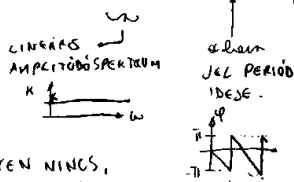 LINEÁRIS
AMPLITÚDÓSPEKTRUM
K
ω
JEL PERIÓD
IDEJE.
φ
π
-π
YEN NINCS,